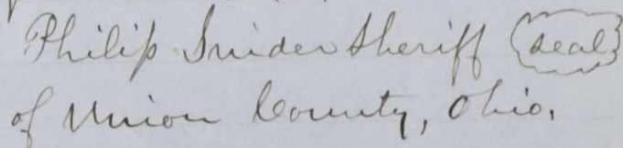 Philip Snider Sheriff (seal)
of Union County, Ohio.